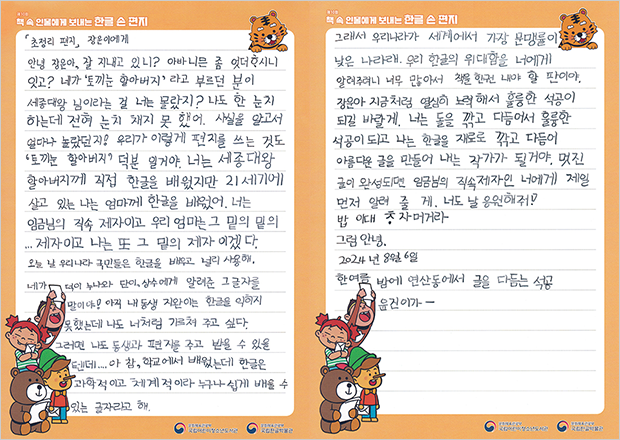 책 속 인물에게 보내는 한글 손 편지
「초정리 편지」 장운이에게
안녕 장운아, 잘 지내고 있니? 아버니믄 좀 잇더후시니
잇고? 네가 '토끼눈 할아버지' 라고 부르던 분이
세종대왕 님이라는 걸 너는 몰랐지? 나도 한 눈치
하는데 전혀 눈치 채지 못 했어. 사실을 알고서
얼마나 놀랐던지! 우리가 이렇게 편지를 쓰는 것도
'토끼눈 할아버지' 덕분 일거야. 너는 세종대왕
할아버지께 직접 한글을 배웠지만 21세기에
살고 있는 나는 엄마께 한글을 배웠어. 너는
임금님의 직속 제자이고 우리 엄마는 그 밑의 밑의
... 제자이고 나는 또 그 밑의 제자 이겠다.
오늘 날 우리나라 국민들은 한글을 배우고 널리 사용해.
네가 덕이 누나와 단이, 상수에게 알려준 그 글자를
말이야! 아직 내 동생 지완이는 한글을 익히지
못했는데 나도 너처럼 가르쳐 주고 싶다.
그러면 나도 동생과 편지를 주고 받을 수 있을
텐데.... 아 참, 학교에서 배웠는데 한글은
과학적이고 체계적이라 누구나 쉽게 배울 수
있는 글자라고 해.
문화체육관광부 국립어린이청소년도서관
문화체육관광부 국립한글박물관
책 속 인물에게 보내는 한글 손 편지
그래서 우리나라가 세계에서 가장 문맹률이
낮은 나라래. 우리 한글의 위대함을 너에게
알려주려니 너무 많아서 책을 한권 내야 할 판이야.
장운아 지금처럼 열심히 노력해서 훌륭한 석공이
되길 바랄게. 너는 돌을 깎고 다듬어서 훌륭한
석공이 되고 나는 한글을 재료로 깎고 다듬어
아름다운 글을 만들어 내는 작가가 될거야. 멋진
글이 완성되면 임금님의 직속제자인 너에게 제일
먼저 알려 줄 게. 너도 날 응원해줘!
밥 이대 자머거라
그럼 안녕.
2024년 8월 6일
한여름 밤에 연산동에서 글을 다듬는 석공
윤건이가ㅡ
문화체육관광부 국립어린이청소년도서관
문화체육관광부 국립한글박물관